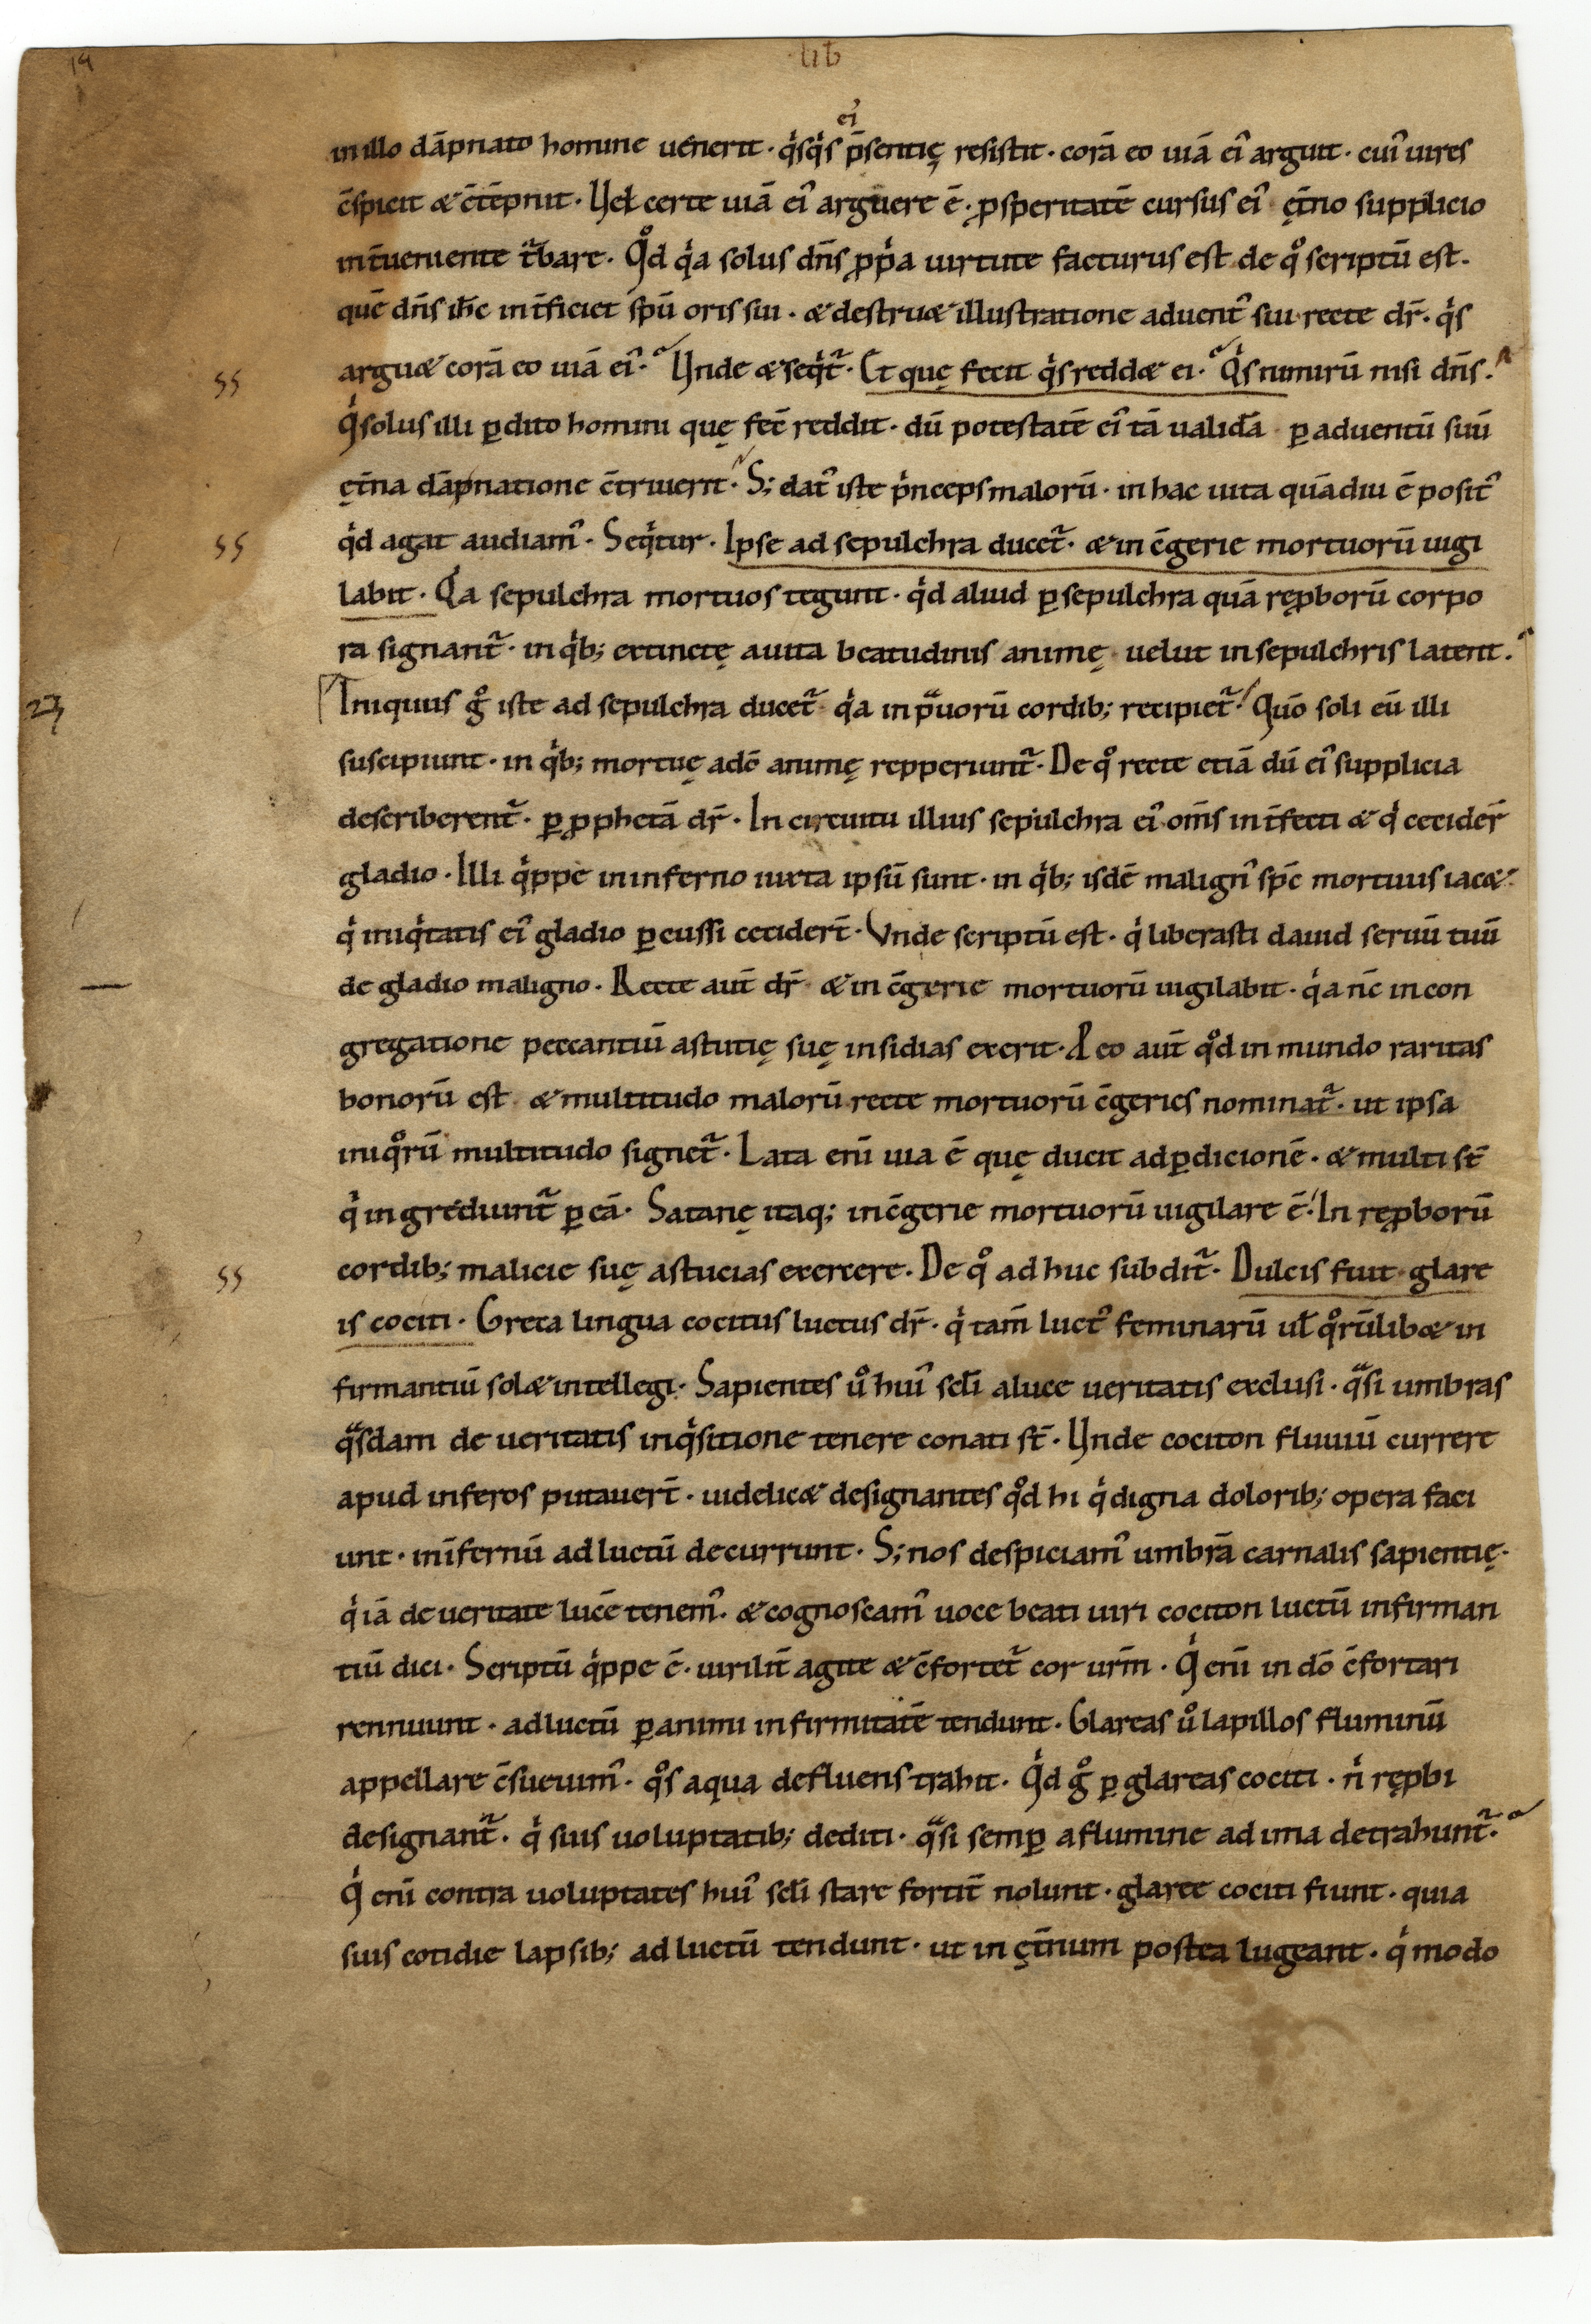 14
lib̄
ei᾽
in illo dāpnato homine uenerit · q̇sq̇s p̄sentię resistit · corā eo uiā ei᾽ arguit · cui᾽ uires
c̄spicit & c̄tēpnit · Vel certe uiā ei᾽ arguere ē · ꝓsperitatē cursus ei᾽ ęt̄no supplicio
int̄ueniente t̾bare · Qͦd q̇a solus dn̄s ꝓṗa uirtute facturus est de qͦ scriptū est ·
quē dn̄s ih̄c int̄ficiet sp̄u oris sui · & destru& illustratione aduent᾽ sui recte dr̄ · q̇s
argu& corā eo uiā ei᾽ · Vnde & seq̇t̾ · Et quę fecit q̇s redd& ei · Q̇s nimirū nisi dn̄s ·
ss
Q̇ solus illi ꝑdito homini quę fec̄ reddit · dū potestatē ei᾽ tā ualidā ꝑ aduentū suū
ęt̄na dāpnatione c̄triuerit · S; dat᾽ iste ṗnceps malorū · in hac uita quādiu ē posit᾽
q̇d agat audiam᾽ · Seq̇tur · Ipse ad sepulchra ducet̾ · & in c̄gerie mortuorū uigi
ss
labit · Q̇a sepulchra mortuos tegunt · q̇d aliud ꝑ sepulchra quā ręꝓborū corpo
ra signant̾ · in q̇b; extinctę a uita beatudinis animę uelut in sepulchris latent ·
Iniquus gͦ iste ad sepulchra ducet̾ q̇a in pᵃuorū cordib; recipiet̾ · Quō soli eū illi
23
suscipiunt · in q̇b; mortuę a dō animę repperiunt̾ · De qͦ recte etiā dū ei᾽ supplicia
describerent̾ · ꝑ ꝓphetā dr̄ · In circuitu illius sepulchra ei᾽ · om̄s int̄fecti & q̇ cecider̄
gladio · Illi q̇ppe in inferno iuxta ipsū sunt · in q̇b; isdē malign᾽ sp̄c mortuus iac& ·
q̇ iniq̇tatis ei᾽ gladio ꝑcussi cecider̄t · Vnde scriptū est · q̇ liberasti dauid seruū tuū
de gladio maligno · Recte aut̄ dr̄ & in c̄gerie mortuorū uigilabit · q̇a nc̄ in con
gregatione peccantiū astutię suę insidias exerit · A eo aut̄ qͦd in mundo raritas
bonorū est & multitudo malorū recte mortuorū c̄geries nominat̾ · ut ipsa
iniqͦrū multitudo signet̾ · Lata eni̅ uia ē quę ducit ad ꝑdicionē · & multi st̄
q̇ ingrediunt̾ ꝑ eā · Satanę itaq; in c̄gerie mortuorū uigilare ē · In ręꝓborū
cordib; malicie suę astucias exercere · De qͦ adhuc subdit̾ · Dulcis fuit glare
ss
is cociti · Greca lingua cocitus luctus dr̄ · q̇ tam̄ luct᾽ feminarū ul̄ qͦrūlib& in
firmantiū sol& intellegi · Sapientes uͦ hui᾽ scl̄i a luce ueritatis exclusi · qᵃsi umbras
qᵃsdam de ueritatis inq̇sitione tenere conati st̄ · Vnde cociton fluuiū currere
apud inferos putauer̄t · uidelic& designantes qͦd hi q̇ digna dolorib; opera faci
unt · in īfernū ad luctū decurrunt · S; nos despiciam᾽ umbrā carnalis sapientię ·
q̇ iā de ueritate lucē tenem᾽ · & cognoscam᾽ uoce beati uiri cociton luctū infirman
tiū dici · Scriptū q̇ppe ē · uirilit̄ agite & c̄fortet̾ cor ur̄m · Q̇ eni̅ in dō c̄fortari
rennuunt · ad luctū ꝑ animi infirmitatē tendunt · Glareas uͦ lapillos fluminū
appellare c̄sueuim᾽ · qͦs aqua defluens trahit · Q̇d gͦ ꝑ glareas cociti · n̍ ręꝓbi
designant̾ · q̇ suis uoluptatib; dediti · qᵃsi semꝑ a flumine ad ima detrahunt̾ ·
Q̇ eni̅ contra uoluptates hui᾽ scl̄i stare fortit̄ nolunt · glaree cociti fiunt · quia
suis cotidie lapsib; ad luctū tendunt · ut in ęt̄num postea lugeant · q̇ modo